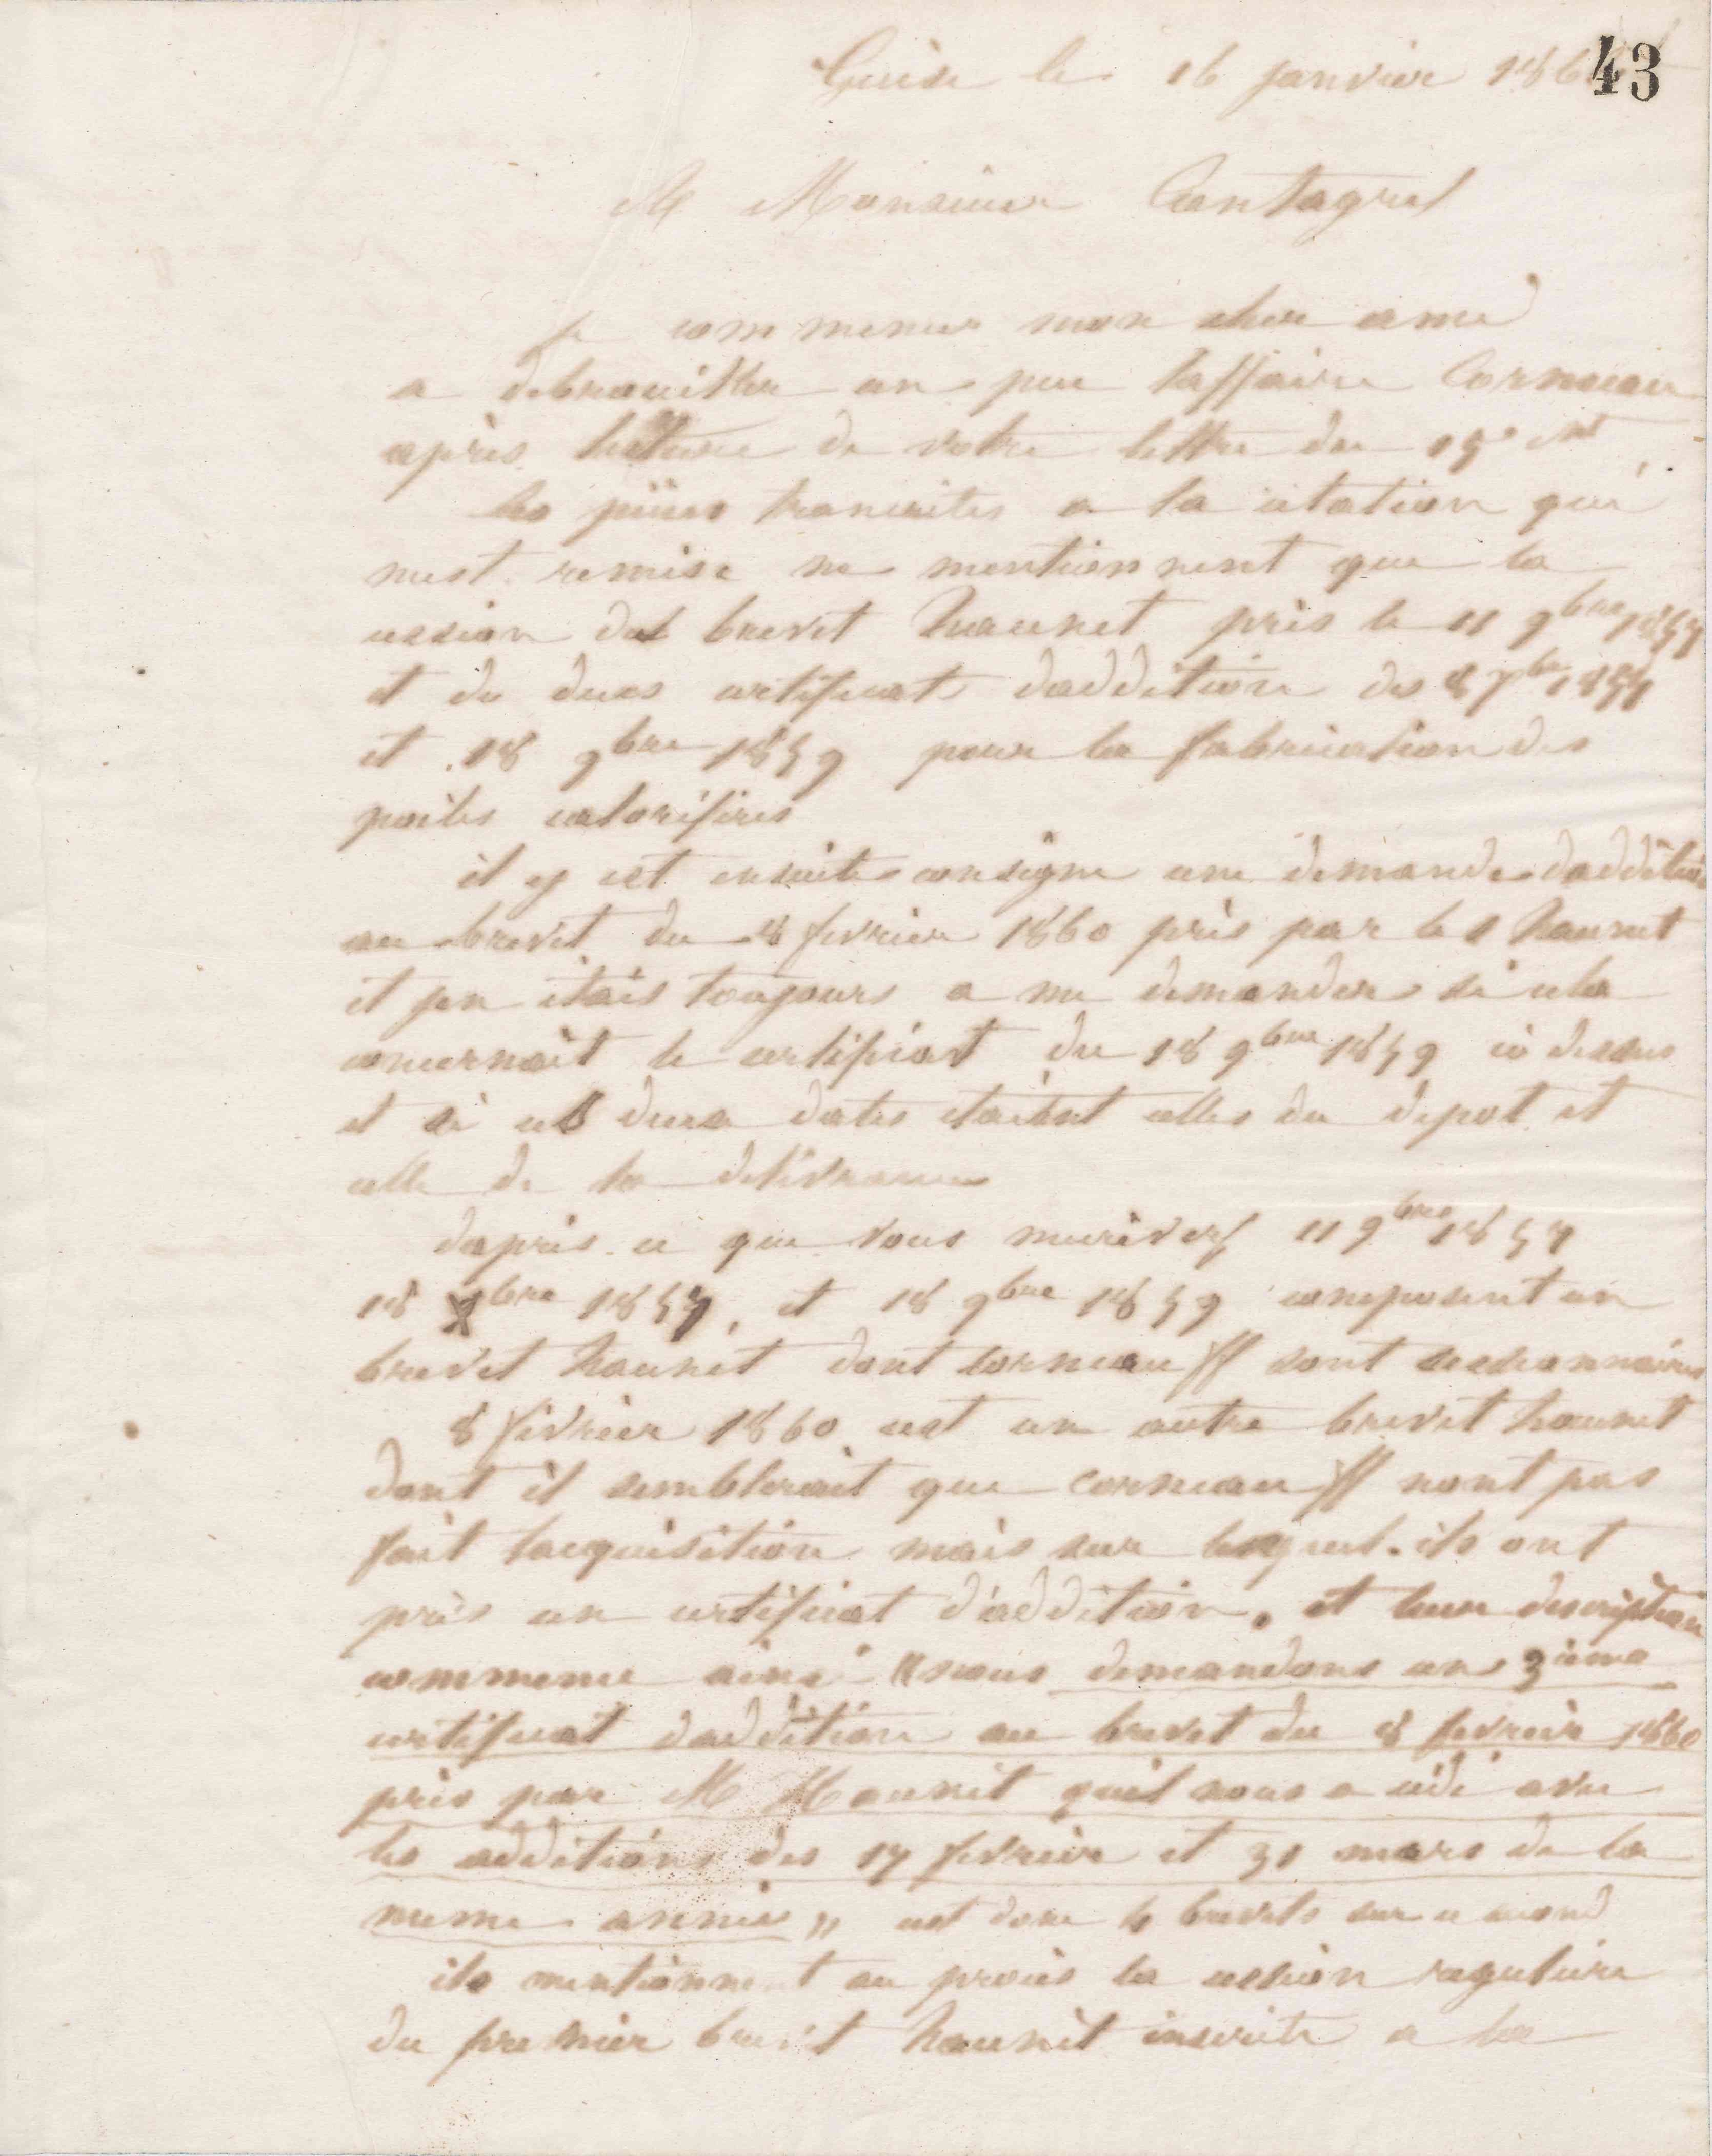 Guise le 16 janvier 186
43
A Monsieur Cantagrel
Je commence mon cher ami
a debrouiller un peu laffaire Corneau
après lecture de votre lettre du 15 ct
les pièces transcrites a la citation qui
mest remise ne mentionnent que la
cession du brevet haunet pris le 11 9bre 1857
et de deux certificats daddition des 8 7bre 1857
et 18 9bre 1859 pour la fabrication des
poiles calorifères
il y est ensuite consigne une demande daddition
au brevet du 8 fevrier 1860 pris par le s haunet
et jen étais toujours a me demander si cela
concernait le certificat du 18 9bre 1859 ci dessus
et si ces deux dates etaient celles du depot et
celle de la délivrance
dapres ce que vous mecrivez 11 9bre 1857
18 Xbre 1857, et 18 9bre 1859 composent un
brevet haunet dont corneau ff sont cessionnaires
8 février 1860 est un autre brevet haunet
dont il semblerait que corneau ff nont pas
fait lacquisition mais sur lequel ils ont
pris un certificat d'addition. et leur description
commence ainsi "nous demandons un 3ième
certificat daddition au brevet du 8 fevrier 1860
pris par M Haunet quil nous a cédé avec
les additions des 17 fevrier et 31 mars de la
meme année" est donc le brevets sur ce second
ils mentionnent au procès la cession reguliere
du premier brevet haunet inscrite a la